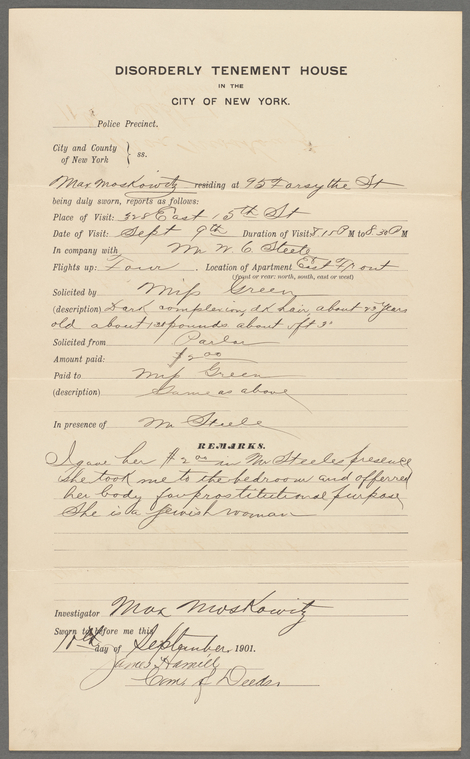 DISORDERLY TENEMENT HOUSE
IN THE
CITY OF NEW YORK.
Police Precinct,
City and County
of New York } ss.
Max Moskowitz residing at 95 Forsythe St
being duly sworn, reports as follows:
Place of Visit: 328 East 15th St
Date of Visit: Sept 9th Duration of Visit 8 15 P M to 8.30 P M
In company with Mr W. C. Steele
Flights up: Four Location of Apartment East Front
(front or rear: north, south, east or west)
Solicited by Miss Green
(description) Dark complexion, dk hair, about years
old about pounds about 5ft 3"
Solicited from Parlor
Amount paid: $2.00
Paid to Miss Green
(description) Same as above
In presence of Mr Steele
REMARKS.
I gave her $2.00 in Mr Steeles presence
she took me to the bedroom and offerred
her body for prostitutional purpose
She is a Jewish woman
Investigator Max Moskowitz
Sworn to before me this
day of September, 1901.
James Hamill
Coms of Deeds